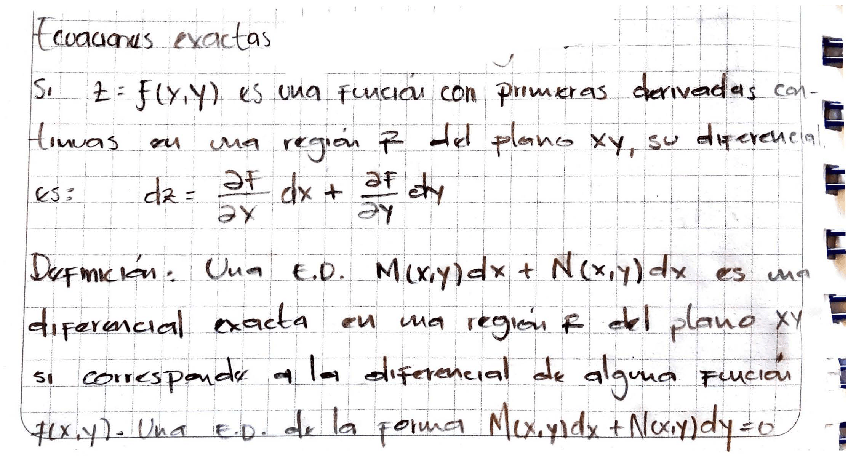 Ecuaciones exactas
Si z = f(x,y) es una función con primeras derivadas con-
tinuas en una región R del plano xy, su diferencial
es: dz = ∂f/∂x dx + ∂f/∂y dy
Definición: Una E.D. M(x,y)dx + N(x,y)dx es una
diferencial exacta en una región R del plano xy
si corresponde a la diferencial de alguna función
f(x,y). Una E.D. de la forma M(x,y)dx + N(x,y)dy = 0